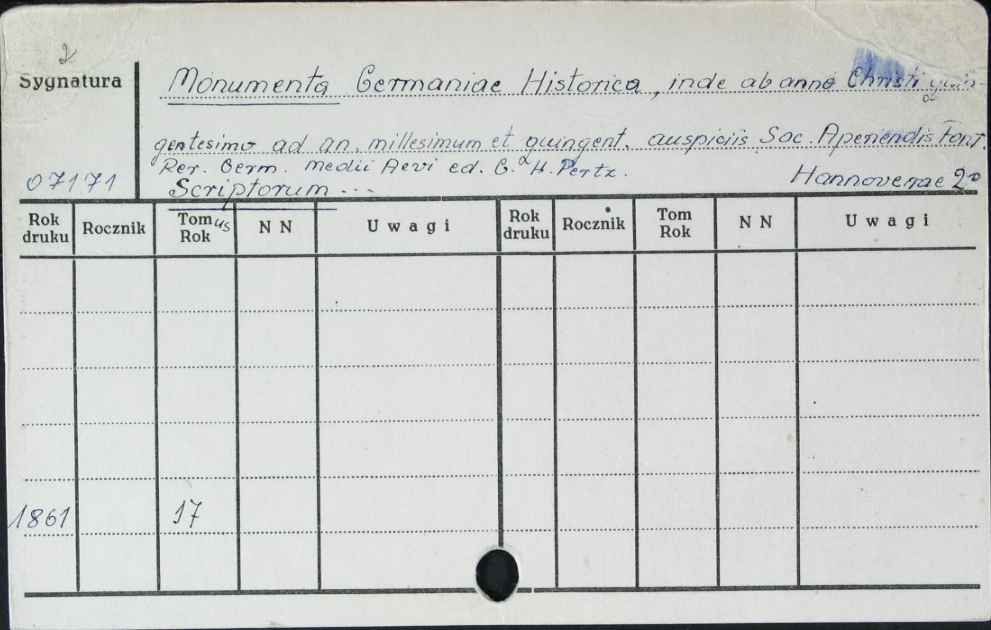 2
Sygnatura
Monumenta Germaniae Historica, inde ab anno Christi quin-
gentesimo ad an. millesimum et quingent. auspiciis Soc. Aperiendis Font.
Rer. Germ. Medii Aevi ed. G. H. Pertz.
07171 Scriptorum ... Hannoverae 2°
Rok druku Rocznik Tomus Rok N N Uwagi Rok druku Rocznik Tom Rok N N Uwagi
1861 17